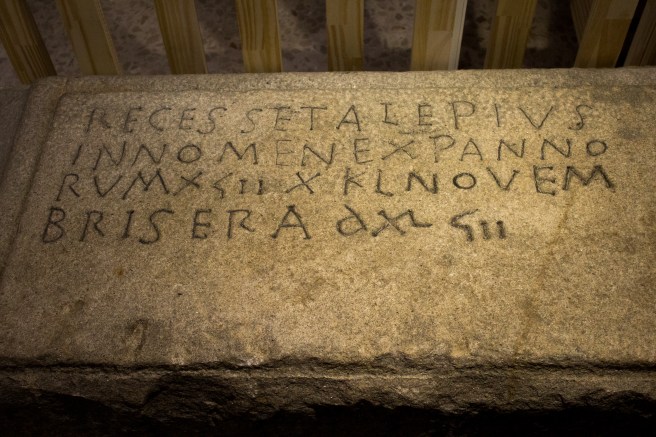 RECESSET ALEPIUS
IN NOMENE XP ANNO
RUM XϚII X KL NOVEM
BRIS ERA DXLϚII